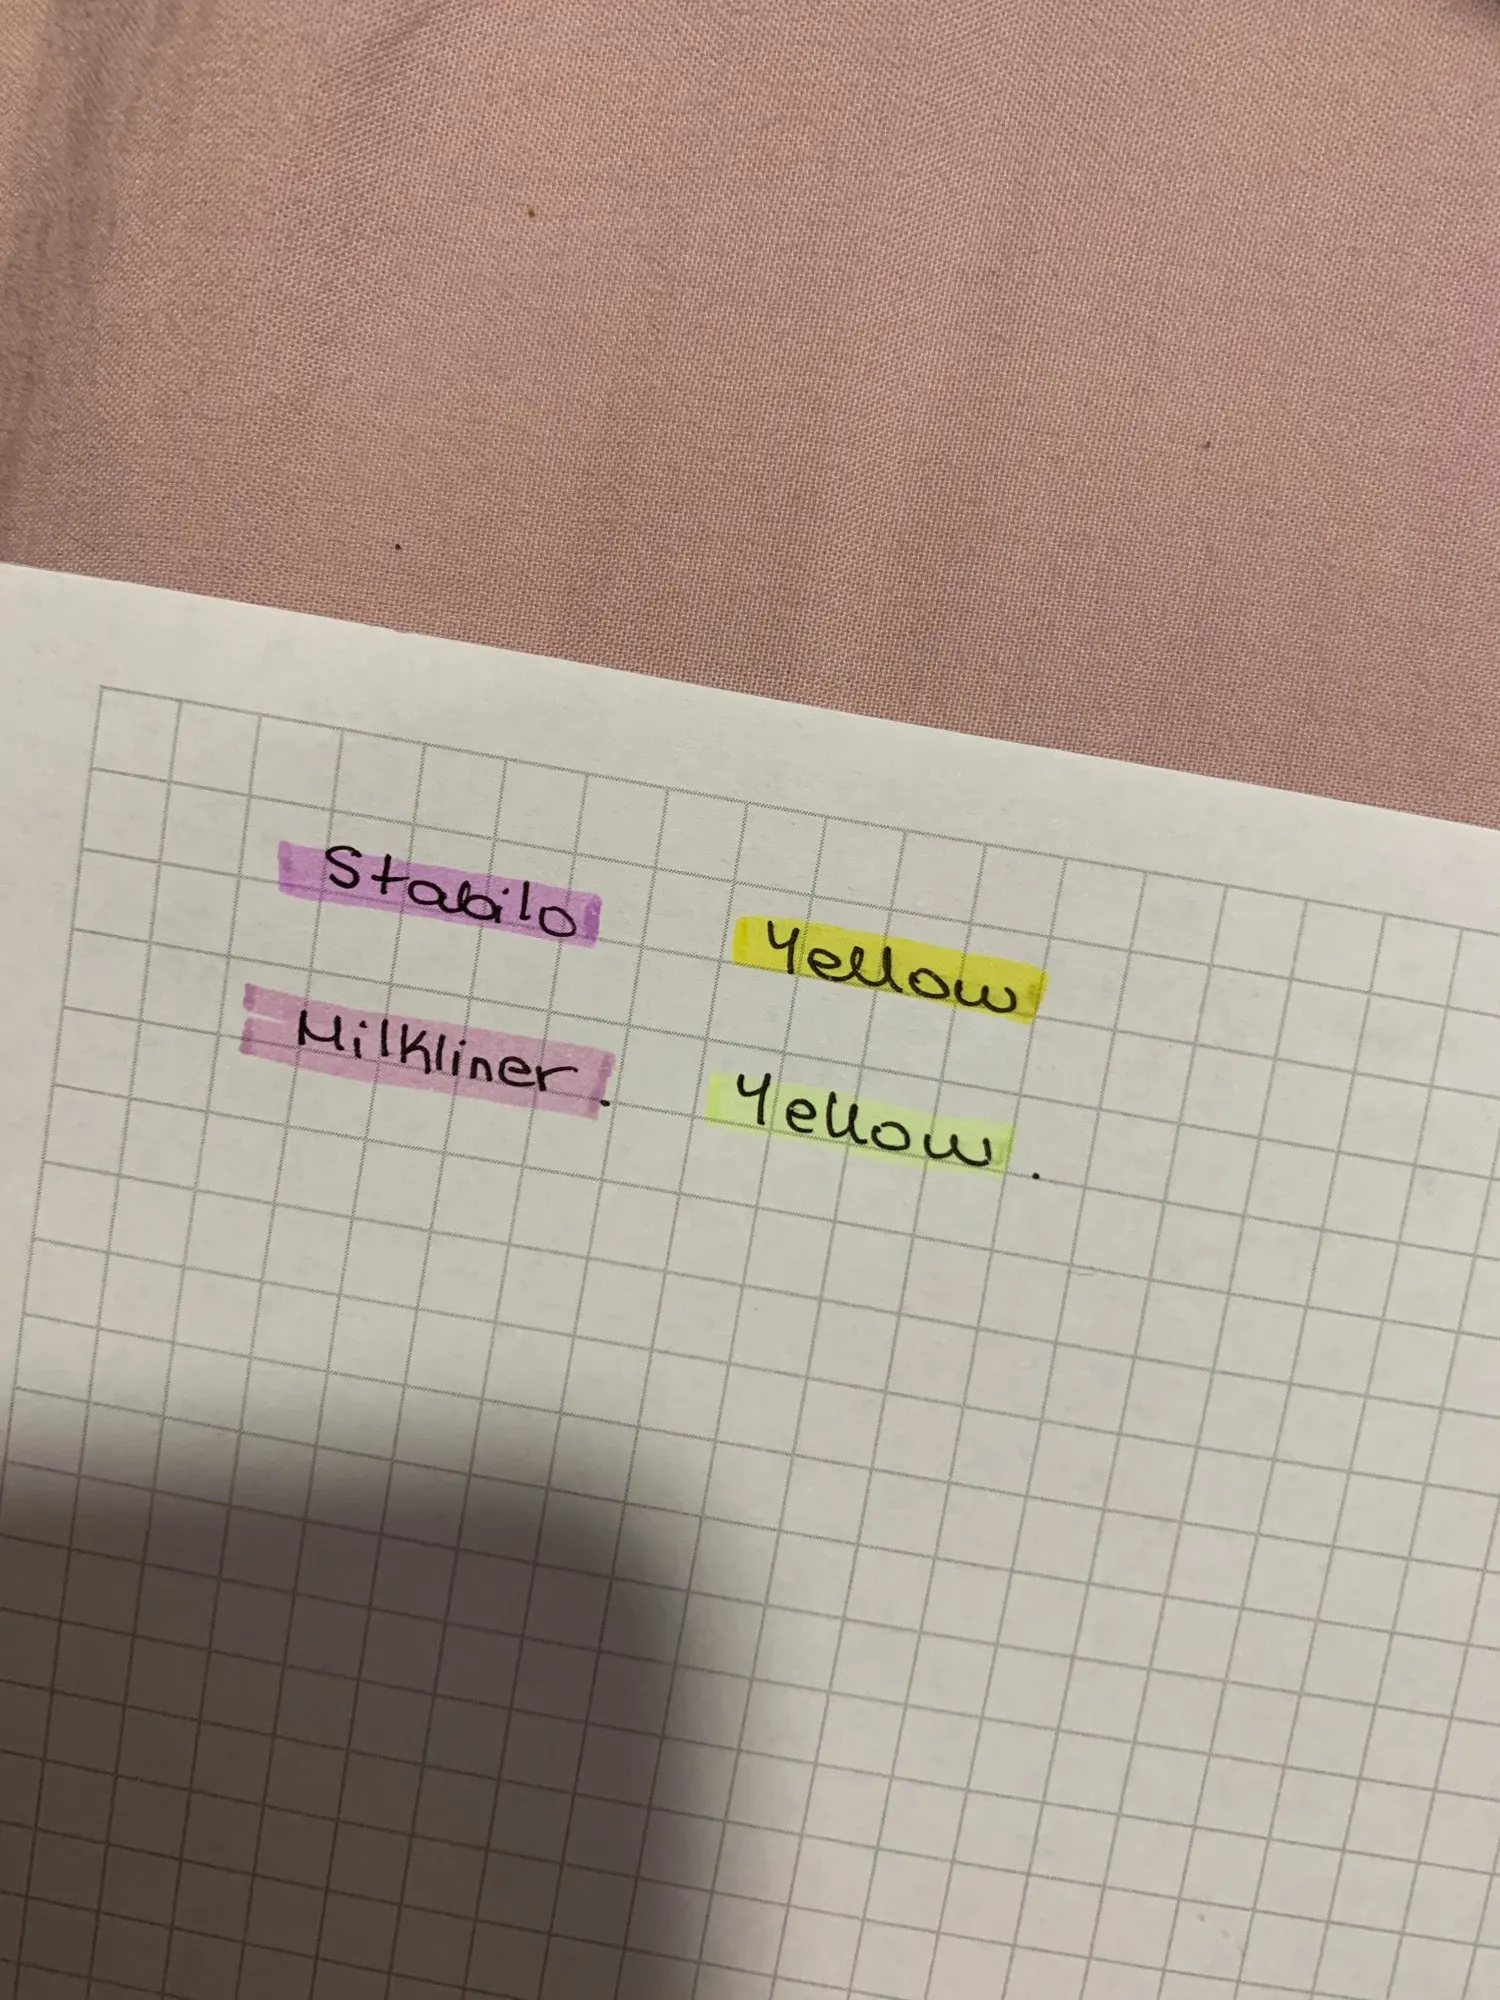 Stabilo Yellow
Milkliner. Yellow.